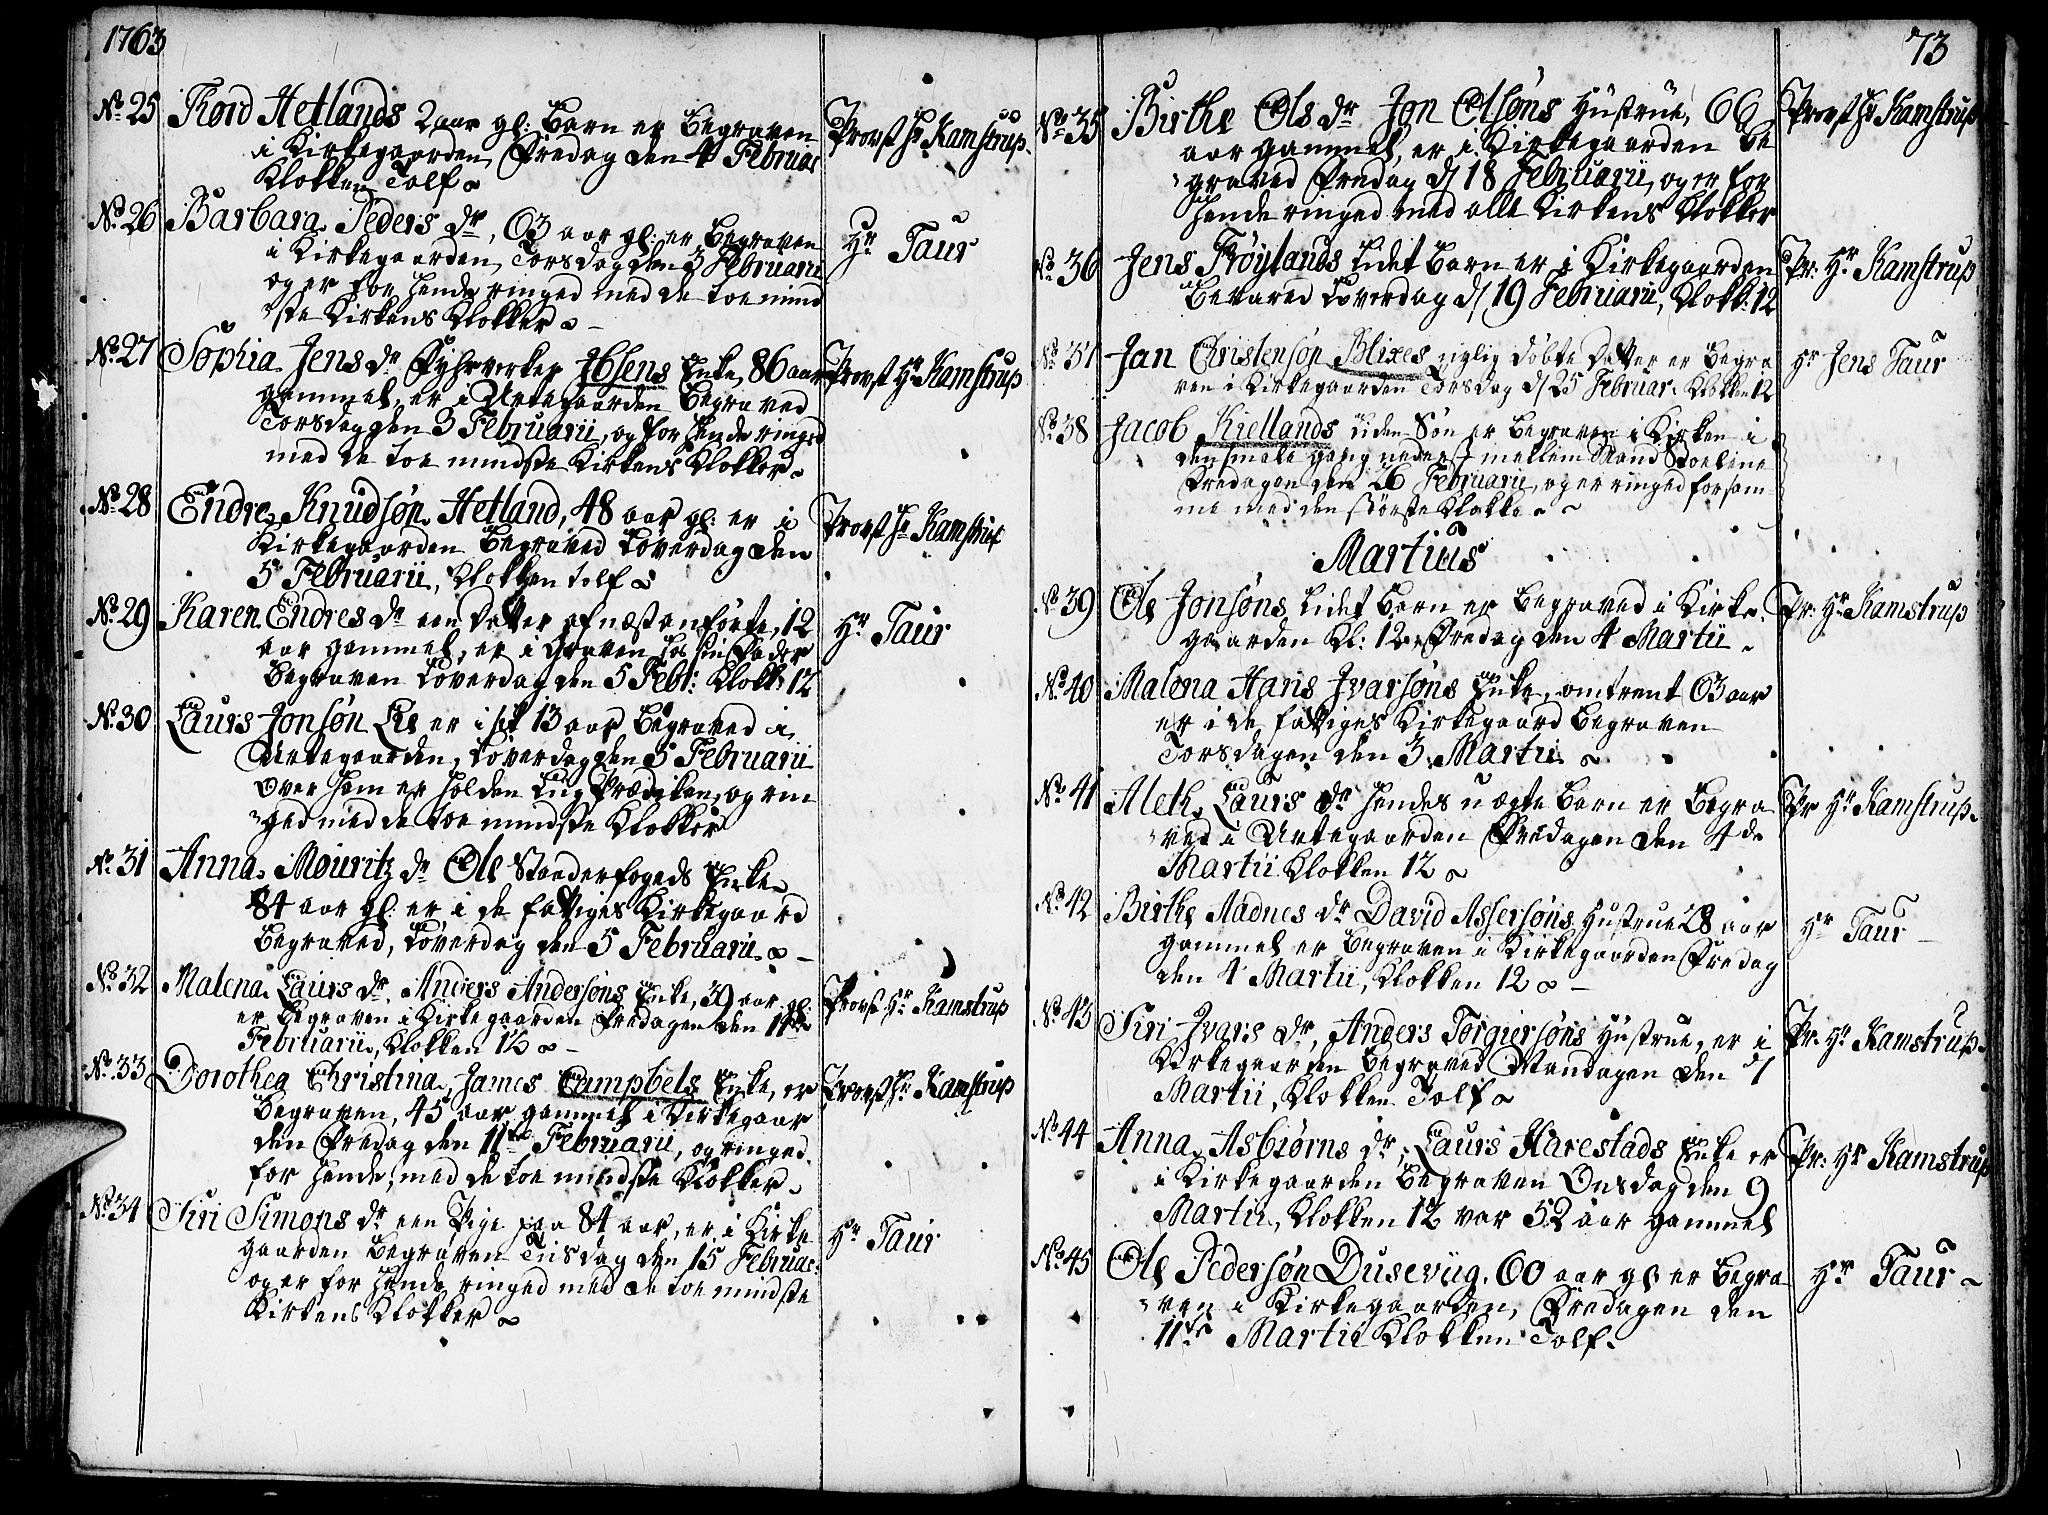 1763
No. 25 Tord Hetlands 2 aar gl: Barn er Begraven Provst Hr Kamstrup.
i Kirkegaarden, Fredag den 4 Februar
Klokken Tolf
No. 26 Barbara Peders dr, 63 aar gl: er Begraven Hr Taur
i Kirkegaarden, Torsdag den 3 Februarii
og er for hende ringed med de toe mind
ste Kirkens Klokker
No. 27 Sophia Jens dr Fyhrverker Ibsens Enke, 86 aar Provst Hr Kamstrup
gammel, er i Urtegaarden Begraved
Torsdag den 3 Februarii, og for hende ringed
med de toe mindste Kirkens Klokker
No. 28 Endre Knudsøn Hetland, 48 aar gl: er i Provst Hr Kamstrup
Kirkegaarden Begraved Løverdag den
5 Februarii, Klokken tolf
No. 29 Karen Endres dr een Datter af næstanførte, 12 Hr Taur
aar gammel, er i Graven hos sin Fader
Begraven Løverdag den 5 Febr: Klokk: 12
No. 30 Laurs Jonsøn er i sit 13 aar Begraved i
Urtegaarden, Løverdag den 5 Februarii
Over ham er holden Liig Prædiken, og rin
ged med de toe mindste Klokker
No. 31 Anna Mouritz dr Ole Enke
84 aar gl: er i de fattiges Kirkegaard
Begraved, Løverdag den 5 Februarii
No. 32 Malena Laurs dr, Anders Andersøns Enke, 39 aar gl: Provst Hr Kamstrup
er Begraven i Kirkegaarden Fredagen den 11te
Februarii, Klokken 12
No. 33 Dorothea Christina, James Campbels Enke, er Provst Hr Kamstrup
Begraven, 45 aar gammel i Kirkegaar
den Fredag den 11te Februarii, og ringed
for hende, med de toe mindste Klokker
No. 34 Siri Simons dr een Pige paa 84 aar, er i Kirke Hr Taur
gaarden Begraven Tiisdag den 15 Februar:
og er for hende ringed med de toe mindste
Kirkens Klokker
73
No. 35 Birthe Ols dr Jon Olsøns Hustrue, 66 Provst Hr Kamstrup
aar gammel, er i Kirkegaarden Be
graved Fredag d/ 18 Februarii, og er for
hende ringed med alle Kirkens Klokker
No. 36 Jens Frøylands lidet Barn er i Kirkegaarden Pr: Hr Kamstrup
Bevared Løverdag d/ 19 Februarii, Klokk: 12
No. 37 Jan Christensøn Blixes nylig døbte Datter er Begra Hr Jens Taur
ven i Kirkegaarden Torsdag d/ 25 Februar: Klokken 12
No. 38 Jacob Kiellands liden Søn er Begraven i Kirken i
den smale gang neder i mellem Mand Stolene
Fredagen den 26 Februarii, og er ringed for sam-
me med den største Klokke
Martius
No. 39 Ole Jonsøns lidet Barn er Begraved i Kirke- Pr: Hr Kamstrup
gaarden Kl: 12 Fredag den 4 Martii
No. 40 Malena Hans Ivarsøns Enke, omtrent 63 aar
er i de fattiges Kirkegaard Begraven
Torsdagen den 3 Martii
No. 41 Aleth Laurs dr hendes uægte Barn er Begra Pr Hr Kamstrup.
ved i Urtegaarden Fredagen den 4de
Martii Klokken 12
No. 42 Birthe Aadnes dr David Assersøns Hustrue 28 aar Hr Taur
gammel er Begraven i Kirkegaarden Fredag
den 4 Martii, Klokken 12
No. 43 Siri Ivars dr, Anders Torgiersøns Hustrue, er i Pr: Hr Kamstrup.
Kirkegaarden Begraved Mandagen den 7
Martii, Klokken Tolf
No. 44 Anna Asbiørns dr, Laurs Harestads Enke er Pr: Hr Kamstrup
i Kirkegaarden Begraven Onsdag den 9
Martii, Klokken 12 var 52 aar gammel
No. 45 Ole Pedersøn Duseviig, 60 aar gl: er Begra Hr Taur
ven i Kirkegaarden, Fredagen den
11te Martii Klokken Tolf.